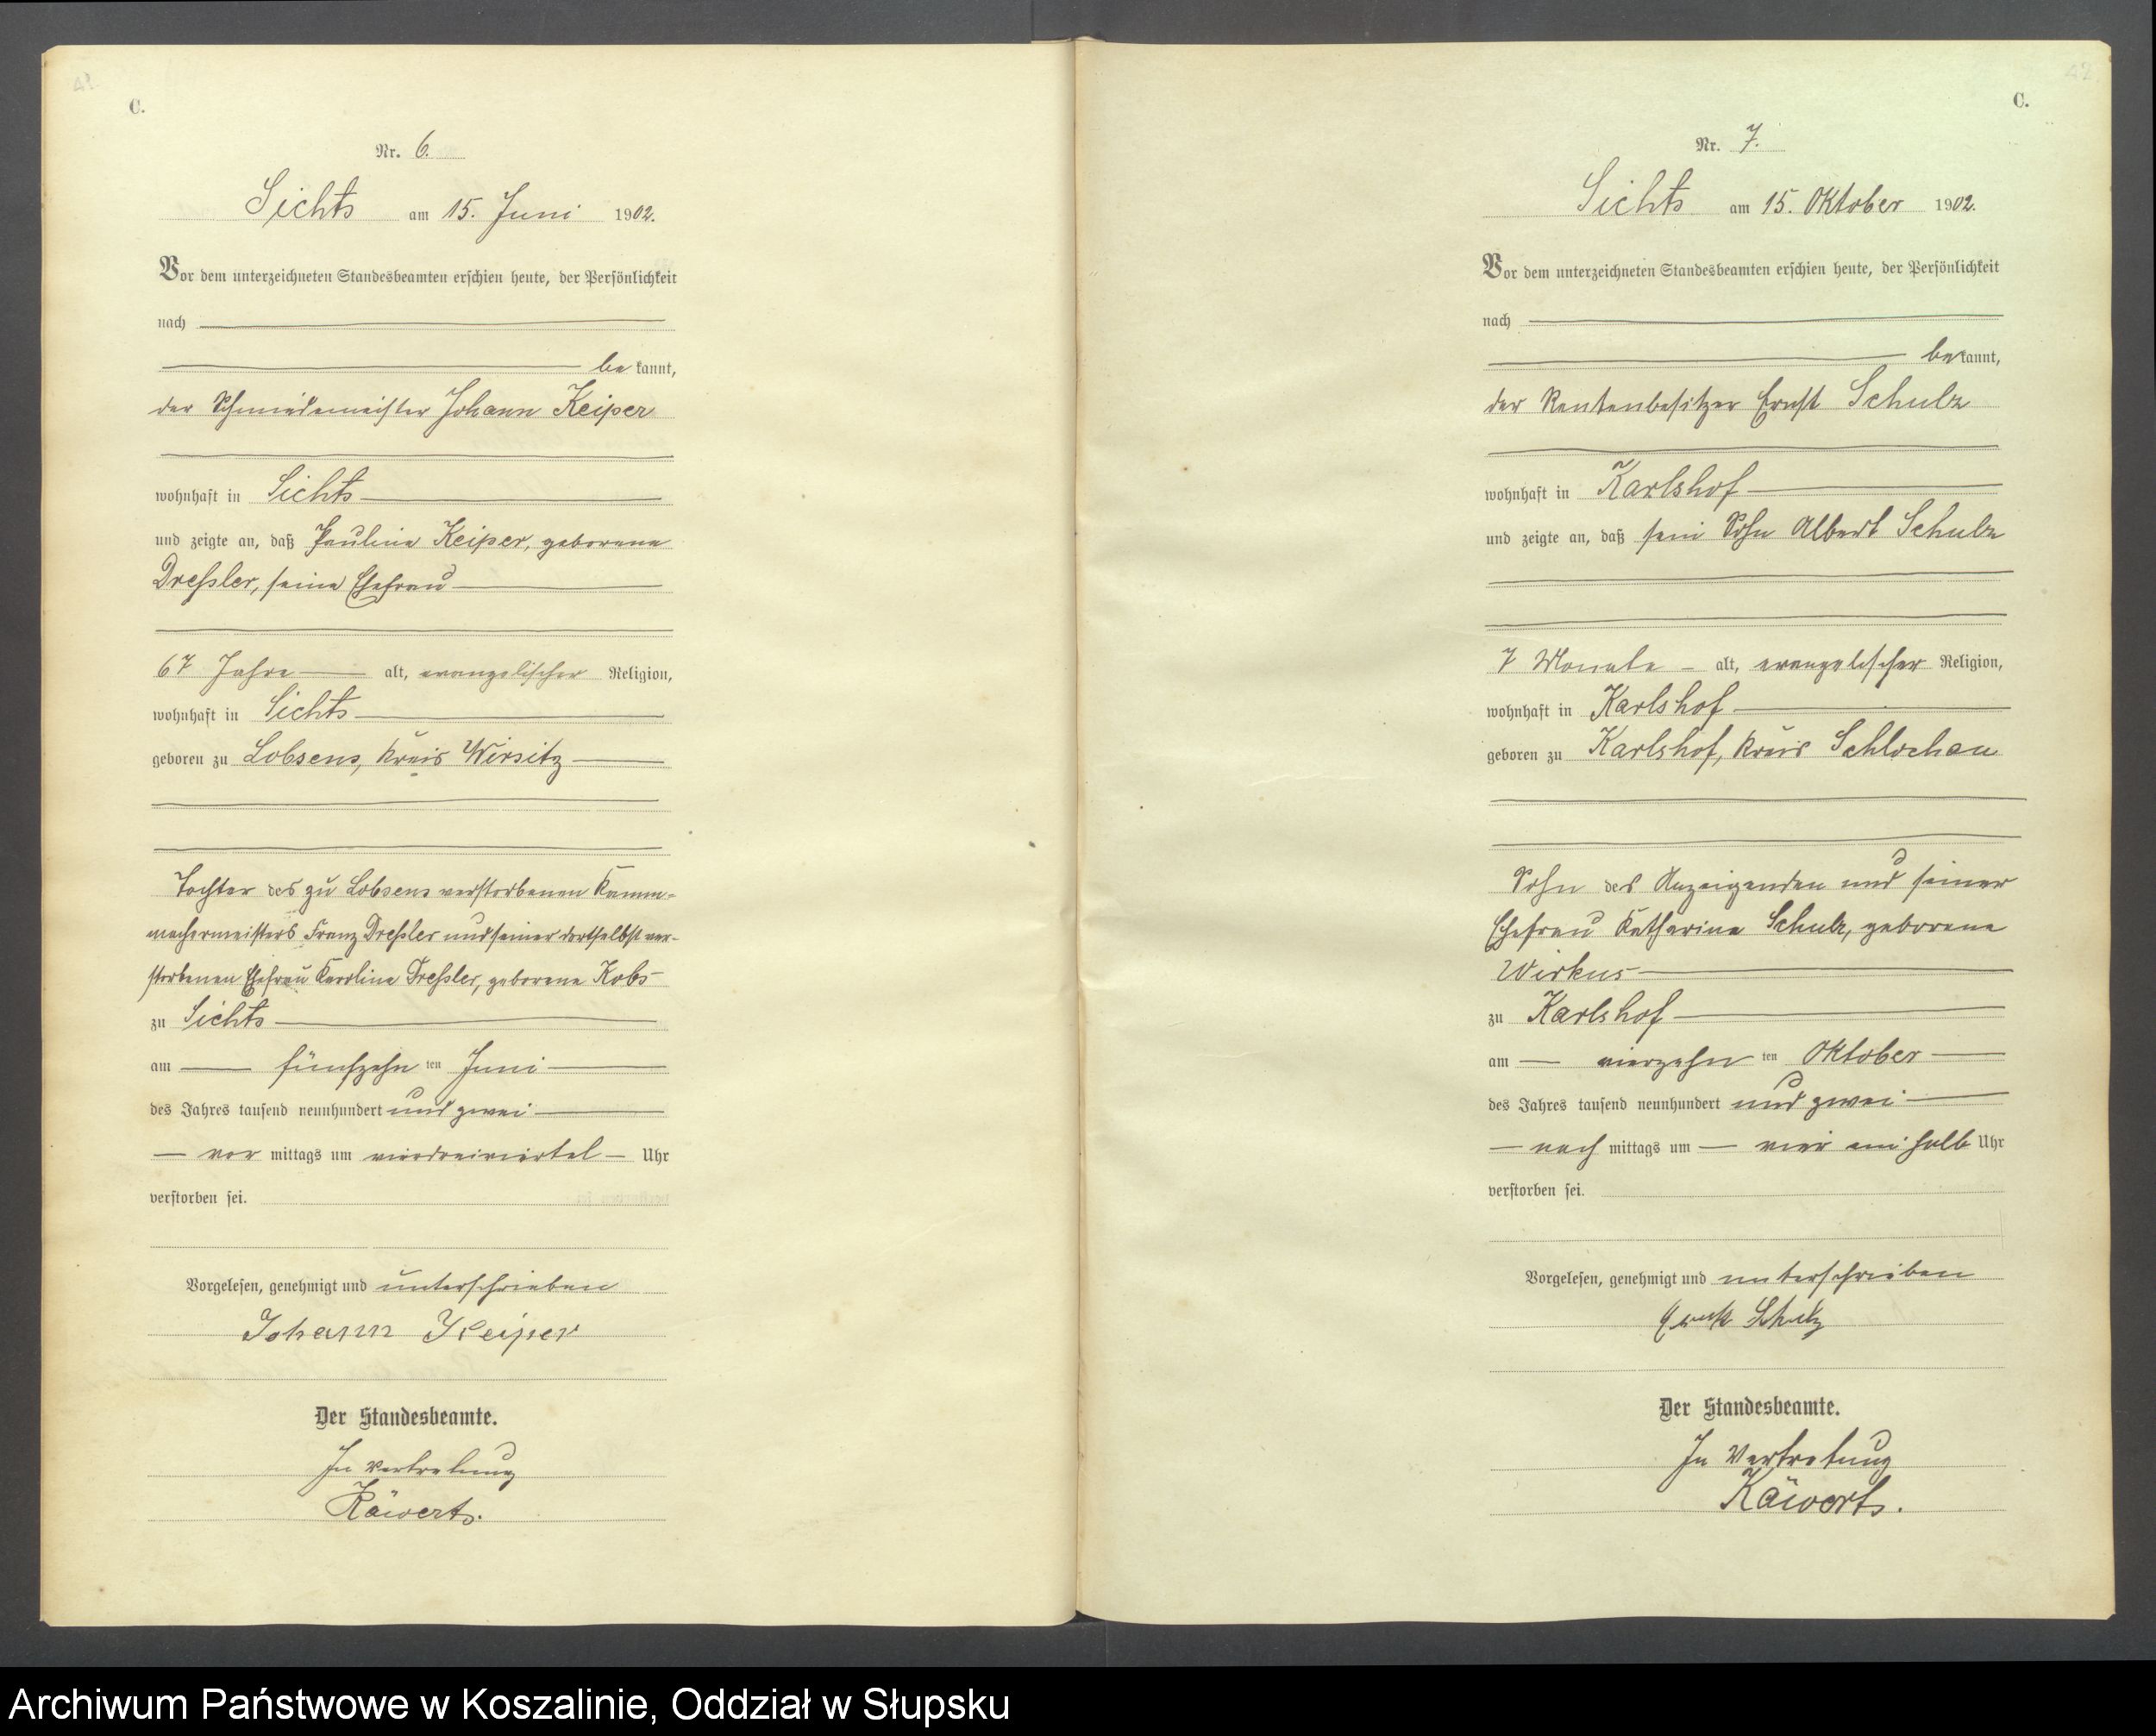 41.
C.
Nr. 6.
Sichts am 15. Juni 1902.
Vor dem unterzeichneten Standesbeamten erschien heute, der Persönlichkeit
nach
be kannt,
der Schmiedemeister Johann Keiper
wohnhaft in Sichts
und zeigte an, daß Pauline Keiper, geborene
Dreßler, seine Ehefrau
67 Jahre alt, evangelischer Religion,
wohnhaft in Sichts
geboren zu Lobsens, Kreis Wirsitz
Tochter des zu Lobsens verstorbenen Kamm-
machermeisters Franz Dreßler und seiner dortselbst ver-
storbenen Ehefrau Karoline Dreßler, geborene Kobs
zu Sichts
am fünfzehn ten Juni
des Jahres tausend neunhundert und zwei
vor mittags um vierdreiviertel Uhr
verstorben sei.
Vorgelesen, genehmigt und unterschrieben
Johann Keiper
Der Standesbeamte.
In Vertretung
Käwerts.
42.
C.
Nr. 7.
Sichts am 15. Oktober 1902.
Vor dem unterzeichneten Standesbeamten erschien heute, der Persönlichkeit
nach
be kannt,
der Rentenbesitzer Ernst Schulz
wohnhaft in Karlshof
und zeigte an, daß sein Sohn Albert Schulz
7 Monate alt, evangelischer Religion,
wohnhaft in Karlshof
geboren zu Karlshof, Kreis Schlochau
Sohn des Anzeigenden und seiner
Ehefrau Katharina Schulz, geborene
Wirkus
zu Karlshof
am vierzehn ten Oktober
des Jahres tausend neunhundert und zwei
nach mittags um vier ein halb Uhr
verstorben sei.
Vorgelesen, genehmigt und unterschrieben
Ernst Schulz
Der Standesbeamte.
In Vertretung
Käwerts.
Archiwum Państwowe w Koszalinie, Oddział w Słupsku